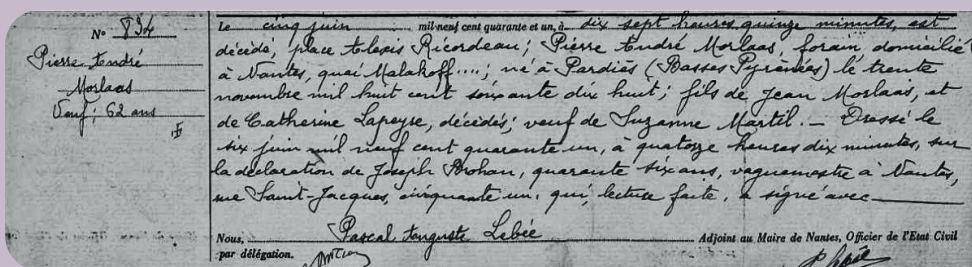 N° 834
Pierre André
Morlaas
Veuf; 62 ans
Le cinq juin mil neuf cent quarante et un, à dix sept heures quinze minutes, est
décédé, place Alexis Ricordeau; Pierre André Morlaas, forain, domicilié
à Nantes, quai Malakoff....; né à Pardiès (Basses Pyrénées) le trente
novembre mil huit cent soixante dix huit; fils de Jean Morlaas, et
de Catherine Lapeyre, décédés; veuf de Suzanne Martil. — Dressé le
six juin mil neuf cent quarante un, à quatorze heures dix minutes, sur
la déclaration de Joseph Brohan, quarante six ans, vaguemestre à Nantes,
rue Saint-Jacques, cinquante un, qui, lecture faite, a signé avec
Nous, Pascal Auguste Lebée Adjoint au Maire de Nantes, Officier de l'Etat Civil
par délégation.